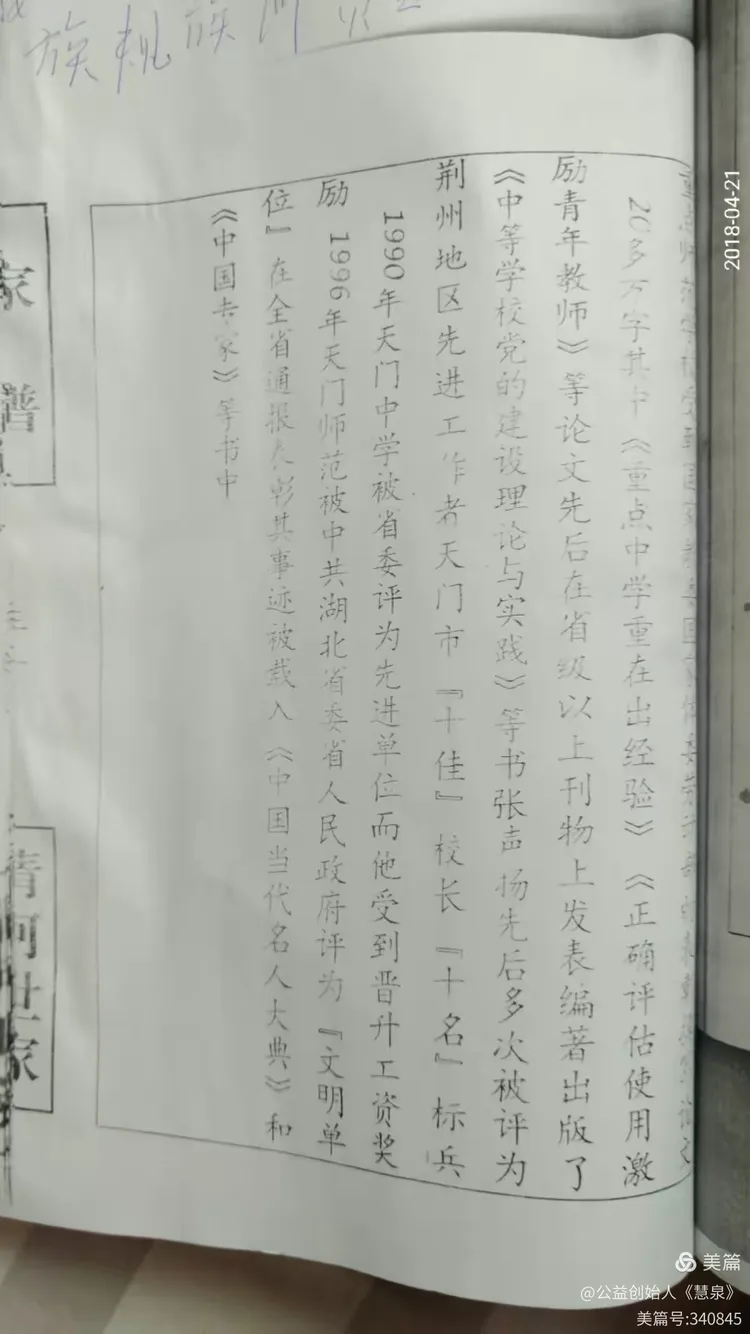 族规族
20多万字其中《重点中学重在出经验》《正确评估使用激
励青年教师》等论文先后在省级以上刊物上发表编著出版了
《中等学校党的建设理论与实践》等书张声扬先后多次被评为
荆州地区先进工作者天门市『十佳』校长『十名』标兵
1990年天门中学被省委评为先进单位而他受到晋升工资奖
励 1996年天门师范被中共湖北省委省人民政府评为『文明单
位』在全省通报表彰其事迹被载入《中国当代名人大典》和
《中国专家》等书中
家谱
清河世家
2018-04-21
美篇
@公益创始人《慧泉》
美篇号:340845